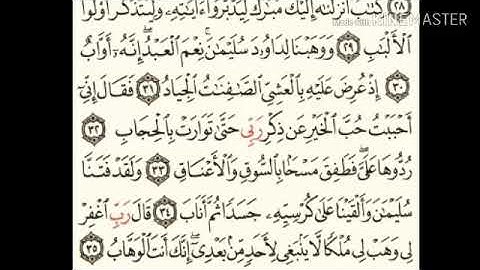 KINEMASTER
كِتَٰبٌ أَنزَلْنَٰهُ إِلَيْكَ مُبَٰرَكٌ لِّيَدَّبَّرُوٓا۟ ءَايَٰتِهِۦ وَلِيَتَذَكَّرَ أُو۟لُوا۟
ٱلْأَلْبَٰبِ ٢٩ وَوَهَبْنَا لِدَاوُۥدَ سُلَيْمَٰنَ ۚ نِعْمَ ٱلْعَبْدُ ۖ إِنَّهُۥٓ أَوَّابٌ
٣٠ إِذْ عُرِضَ عَلَيْهِ بِٱلْعَشِىِّ ٱلصَّٰفِنَٰتُ ٱلْجِيَادُ ٣١ فَقَالَ إِنِّىٓ
أَحْبَبْتُ حُبَّ ٱلْخَيْرِ عَن ذِكْرِ رَبِّى حَتَّىٰ تَوَارَتْ بِٱلْحِجَابِ ٣٢
رُدُّوهَا عَلَىَّ ۖ فَطَفِقَ مَسْحًۢا بِٱلسُّوقِ وَٱلْأَعْنَاقِ ٣٣ وَلَقَدْ فَتَنَّا
سُلَيْمَٰنَ وَأَلْقَيْنَا عَلَىٰ كُرْسِيِّهِۦ جَسَدًا ثُمَّ أَنَابَ ٣٤ قَالَ رَبِّ ٱغْفِرْ
لِى وَهَبْ لِى مُلْكًا لَّا يَنۢبَغِى لِأَحَدٍ مِّنۢ بَعْدِىٓ ۖ إِنَّكَ أَنتَ ٱلْوَهَّابُ ٣٥